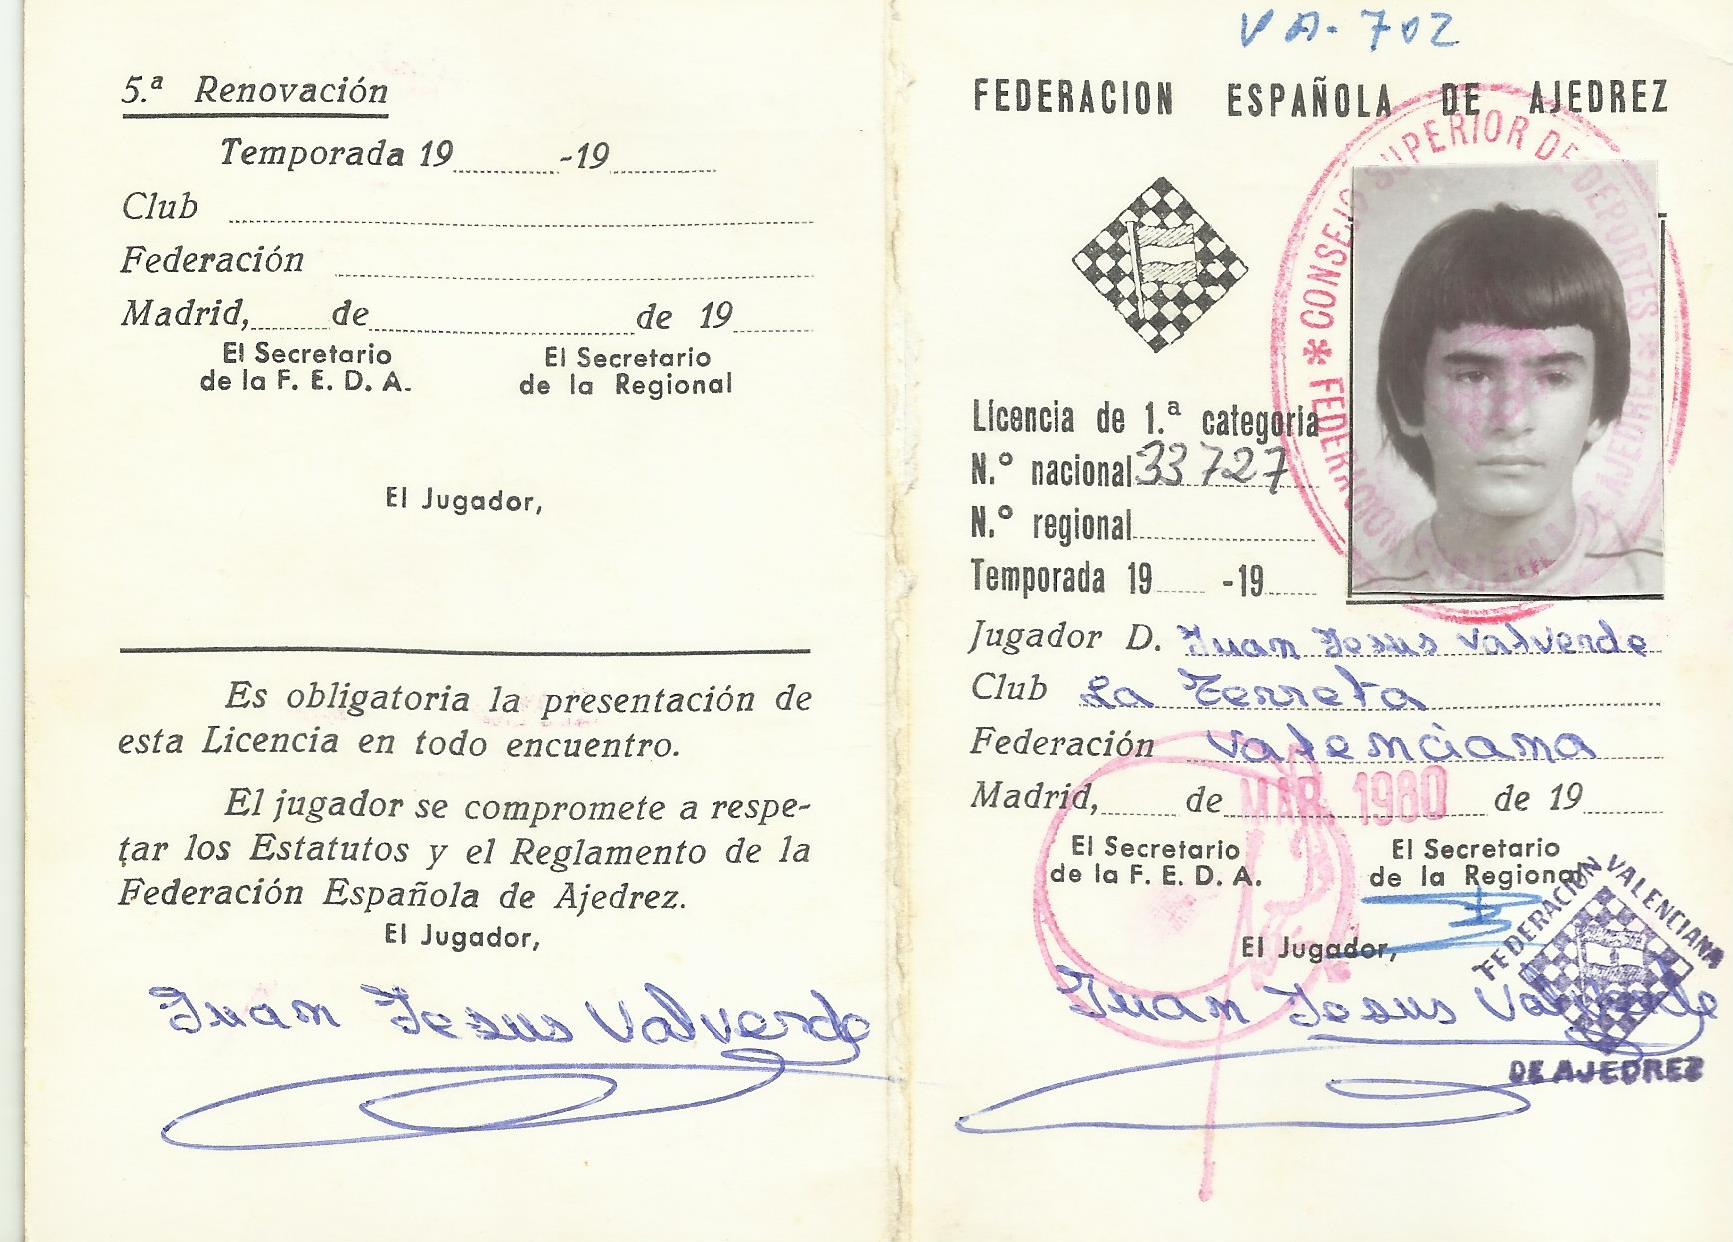 5.ª Renovación
Temporada 19 -19
Club
Federación
Madrid, de de 19
El Secretario
de la F. E. D. A.
El Secretario
de la Regional
El Jugador,
Es obligatoria la presentación de
esta Licencia en todo encuentro.
El jugador se compromete a respe-
tar los Estatutos y el Reglamento de la
Federación Española de Ajedrez.
El Jugador,
Juan Jesus Valverde
VA-702
FEDERACION ESPAÑOLA DE AJEDREZ
* CONSEJO SUPERIOR DE DEPORTES *
FEDERACION ESPAÑOLA DE AJEDREZ
Licencia de 1.ª categoria
N.º nacional 33727
N.º regional
Temporada 19 -19
Jugador D. Juan Jesus Valverde
Club La Terreta
Federación Valenciana
Madrid, de MAR. 1980 de 19
El Secretario
de la F. E. D. A.
El Secretario
de la Regional
El Jugador,
Juan Jesus Valverde
FEDERACION VALENCIANA
DE AJEDREZ